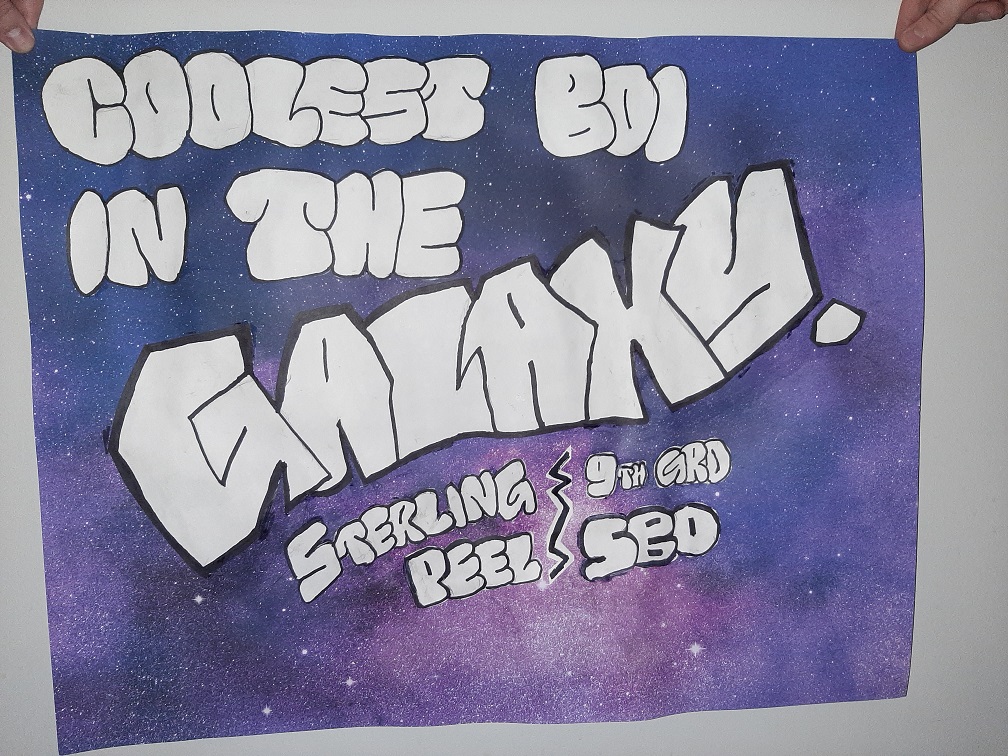 COOLEST BOI
IN THE
GALAXY.
STERLING
PEEL
9TH GRD
SBO